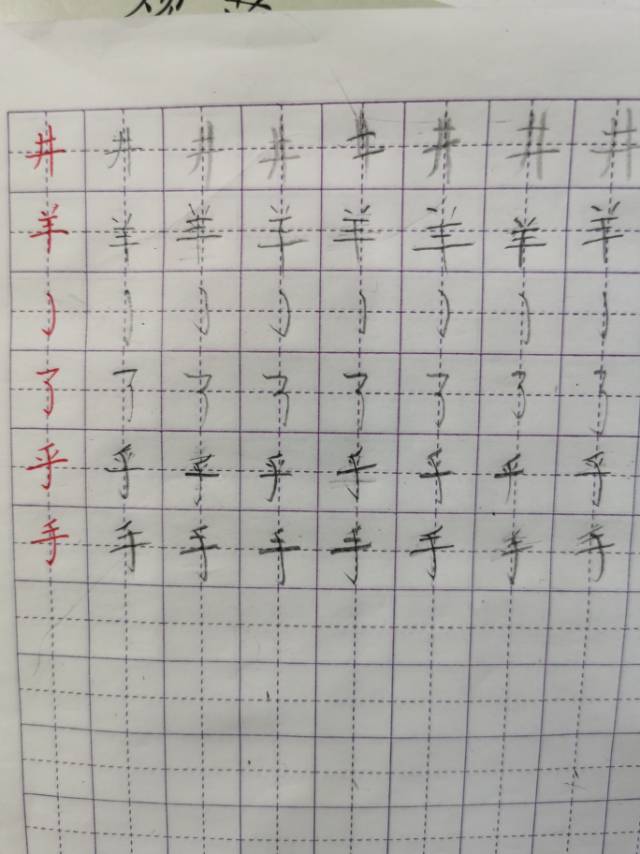 井 井 井 井 井 井 井 井
羊 羊 羊 羊 羊 羊 羊 羊
亅 亅 亅 亅 亅 亅 亅 亅
了 了 了 了 了 了 了 了
乎 乎 乎 乎 乎 乎 乎 乎
手 手 手 手 手 手 手 手